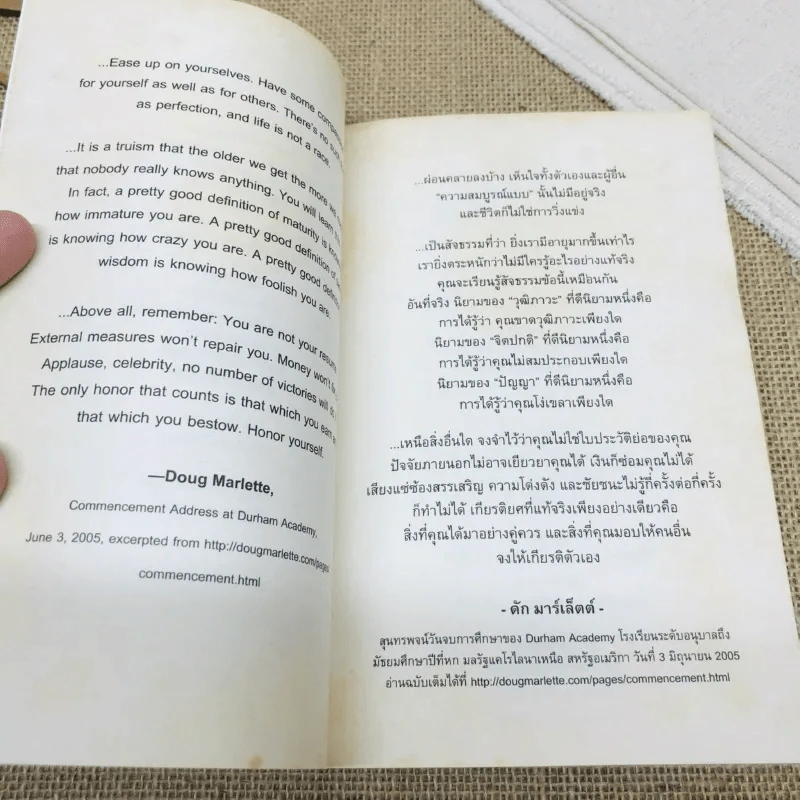 ...Ease up on yourselves. Have some
for yourself as well as for others. There's no such
as perfection, and life is not a race.
...It is a truism that the older we get the more we
that nobody really knows anything. You will learn
In fact, a pretty good definition of maturity is
how immature you are. A pretty good definition of
is knowing how crazy you are. A pretty good
wisdom is knowing how foolish you are.
...Above all, remember: You are not your
External measures won't repair you. Money won't
Applause, celebrity, no number of victories will
The only honor that counts is that which you earn
that which you bestow. Honor yourself.
—Doug Marlette,
Commencement Address at Durham Academy,
June 3, 2005, excerpted from http://dougmarlette.com/pages
commencement.html
...ผ่อนคลายลงบ้าง เห็นใจทั้งตัวเองและผู้อื่น
“ความสมบูรณ์แบบ” นั้นไม่มีอยู่จริง
และชีวิตก็ไม่ใช่การวิ่งแข่ง
...เป็นสัจธรรมที่ว่า ยิ่งเรามีอายุมากขึ้นเท่าไร
เรายิ่งตระหนักว่าไม่มีใครรู้อะไรอย่างแท้จริง
คุณจะเรียนรู้สัจธรรมข้อนี้เหมือนกัน
อันที่จริง นิยามของ “วุฒิภาวะ” ที่ดีนิยามหนึ่งคือ
การได้รู้ว่า คุณขาดวุฒิภาวะเพียงใด
นิยามของ “จิตปกติ” ที่ดีนิยามหนึ่งคือ
การได้รู้ว่าคุณไม่สมประกอบเพียงใด
นิยามของ “ปัญญา” ที่ดีนิยามหนึ่งคือ
การได้รู้ว่าคุณโง่เขลาเพียงใด
...เหนือสิ่งอื่นใด จงจำไว้ว่าคุณไม่ใช่ใบประวัติย่อของคุณ
ปัจจัยภายนอกไม่อาจเยียวยาคุณได้ เงินก็ซ่อมคุณไม่ได้
เสียงแซ่ซ้องสรรเสริญ ความโด่งดัง และชัยชนะไม่รู้กี่ครั้งต่อกี่ครั้ง
ก็ทำไม่ได้ เกียรติยศที่แท้จริงเพียงอย่างเดียวคือ
สิ่งที่คุณได้มาอย่างคู่ควร และสิ่งที่คุณมอบให้คนอื่น
จงให้เกียรติตัวเอง
- ดัก มาร์เล็ตต์ -
สุนทรพจน์วันจบการศึกษาของ Durham Academy โรงเรียนระดับอนุบาลถึง
มัธยมศึกษาปีที่หก มลรัฐแคโรไลนาเหนือ สหรัฐอเมริกา วันที่ 3 มิถุนายน 2005
อ่านฉบับเต็มได้ที่ http://dougmarlette.com/pages/commencement.html